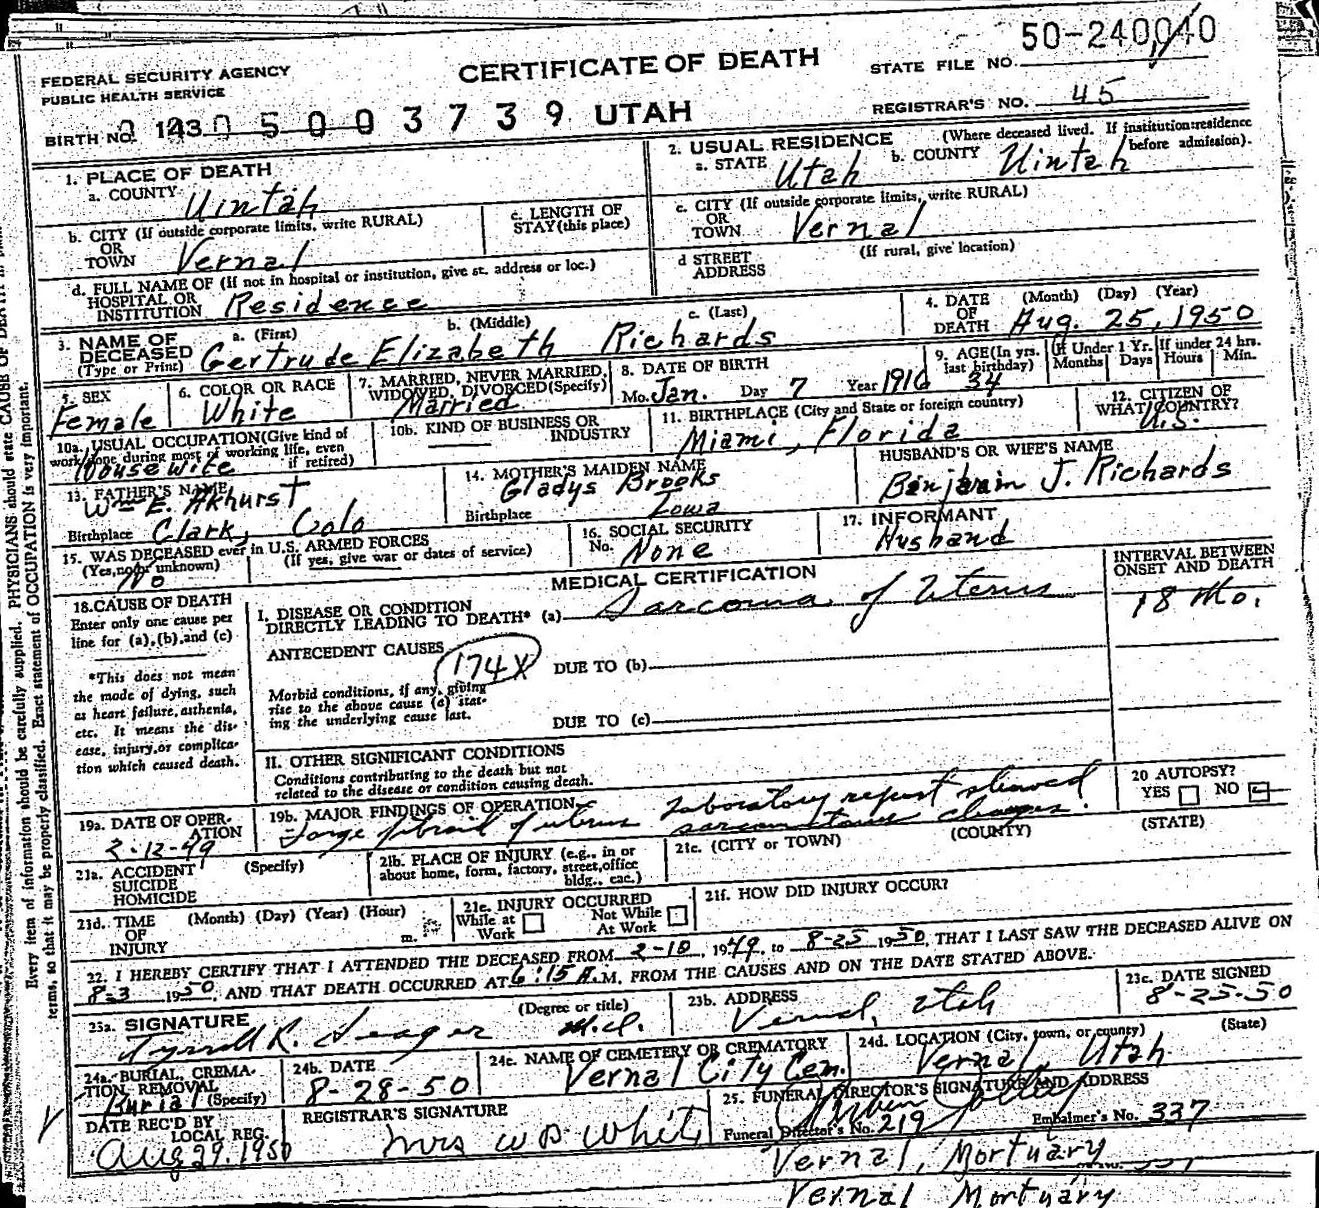 50-240040
FEDERAL SECURITY AGENCY
PUBLIC HEALTH SERVICE
CERTIFICATE OF DEATH
STATE FILE NO.
BIRTH NO. 143 0 5 0 0 3 7 3 9 UTAH
REGISTRAR'S NO. 45
1. PLACE OF DEATH
a. COUNTY Uintah
2. USUAL RESIDENCE (Where deceased lived. If institution:residence before admission).
a. STATE Utah b. COUNTY Uintah
b. CITY (If outside corporate limits, write RURAL)
OR
TOWN Vernal
c. LENGTH OF
STAY(this place)
c. CITY (If outside corporate limits, write RURAL)
OR
TOWN Vernal
d. FULL NAME OF (If not in hospital or institution, give st. address or loc.)
HOSPITAL OR
INSTITUTION Residence
d STREET (If rural, give location)
ADDRESS
3. NAME OF a. (First) b. (Middle) c. (Last)
DECEASED
(Type or Print) Gertrude Elizabeth Richards
4. DATE (Month) (Day) (Year)
OF
DEATH Aug. 25, 1950
5. SEX
Female
6. COLOR OR RACE
White
7. MARRIED, NEVER MARRIED,
WIDOWED, DIVORCED(Specify)
Married
8. DATE OF BIRTH
Mo. Jan. Day 7 Year 1916
9. AGE(In yrs.
last birthday)
34
If Under 1 Yr.
Months Days
If under 24 hrs.
Hours Min.
10a. USUAL OCCUPATION(Give kind of
work done during most of working life, even
if retired)
Housewife
10b. KIND OF BUSINESS OR
INDUSTRY
11. BIRTHPLACE (City and State or foreign country)
Miami, Florida
12. CITIZEN OF
WHAT COUNTRY?
U.S.
13. FATHER'S NAME
Wm E. Akhurst
Birthplace Clark, Colo
14. MOTHER'S MAIDEN NAME
Gladys Brooks
Birthplace Iowa
HUSBAND'S OR WIFE'S NAME
Benjamin J. Richards
15. WAS DECEASED ever in U.S. ARMED FORCES
(Yes,no,or unknown) (If yes, give war or dates of service)
No
16. SOCIAL SECURITY
No. None
17. INFORMANT
Husband
18.CAUSE OF DEATH
Enter only one cause per
line for (a),(b),and (c)
*This does not mean
the mode of dying, such
as heart failure, asthenia,
etc. It means the dis-
ease, injury,or complica-
tion which caused death.
MEDICAL CERTIFICATION
I. DISEASE OR CONDITION
DIRECTLY LEADING TO DEATH* (a) Sarcoma of Uterus
ANTECEDENT CAUSES
174X
DUE TO (b)
Morbid conditions, if any, giving
rise to the above cause (a) stat-
ing the underlying cause last.
DUE TO (c)
INTERVAL BETWEEN
ONSET AND DEATH
18 Mo.
II. OTHER SIGNIFICANT CONDITIONS
Conditions contributing to the death but not
related to the disease or condition causing death.
19a. DATE OF OPER-
ATION
2-12-49
19b. MAJOR FINDINGS OF OPERATION
Large fibroid of uterus laboratory report showed
sarcomatous changes.
20 AUTOPSY?
YES NO
21a. ACCIDENT (Specify)
SUICIDE
HOMICIDE
21b. PLACE OF INJURY (e.g., in or
about home, form, factory, street,office
bldg., eac.)
21c. (CITY or TOWN) (COUNTY) (STATE)
21d. TIME (Month) (Day) (Year) (Hour)
OF
INJURY m.
21e. INJURY OCCURRED
While at Work Not While At Work
21f. HOW DID INJURY OCCUR?
22. I HEREBY CERTIFY THAT I ATTENDED THE DECEASED FROM 2-10, 1949, to 8-25 1950, THAT I LAST SAW THE DECEASED ALIVE ON
8-3 1950, AND THAT DEATH OCCURRED AT 6:15 A.M. FROM THE CAUSES AND ON THE DATE STATED ABOVE.
23a. SIGNATURE (Degree or title)
Tyrrell R. Seager M.D.
23b. ADDRESS
Vernal, Utah
23c. DATE SIGNED
8-25-50
24a. BURIAL, CREMA-
TION, REMOVAL
Burial (Specify)
24b. DATE
8-28-50
24c. NAME OF CEMETERY OR CREMATORY
Vernal City Cem.
24d. LOCATION (City, town, or county) (State)
Vernal, Utah
DATE REC'D BY
LOCAL REG.
Aug 29, 1950
REGISTRAR'S SIGNATURE
Mrs W B White
25. FUNERAL DIRECTOR'S SIGNATURE AND ADDRESS
Funeral Director's No. 219 Embalmer's No. 337
Vernal, Mortuary
Vernal Mortuary
Every item of information should be carefully supplied. PHYSICIANS should state CAUSE OF DEATH in plain
terms, so that it may be properly classified. Exact statement of OCCUPATION is very important.